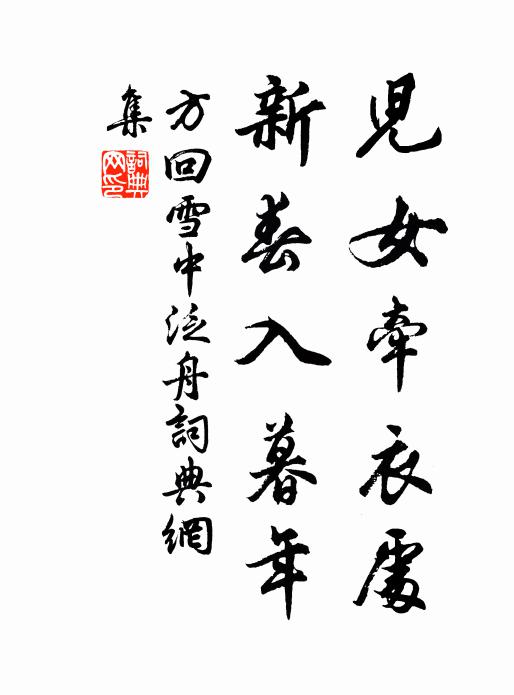 兒女牽衣處
新春入暮年
方回雪中泛舟詞典網
集
詞典
网印